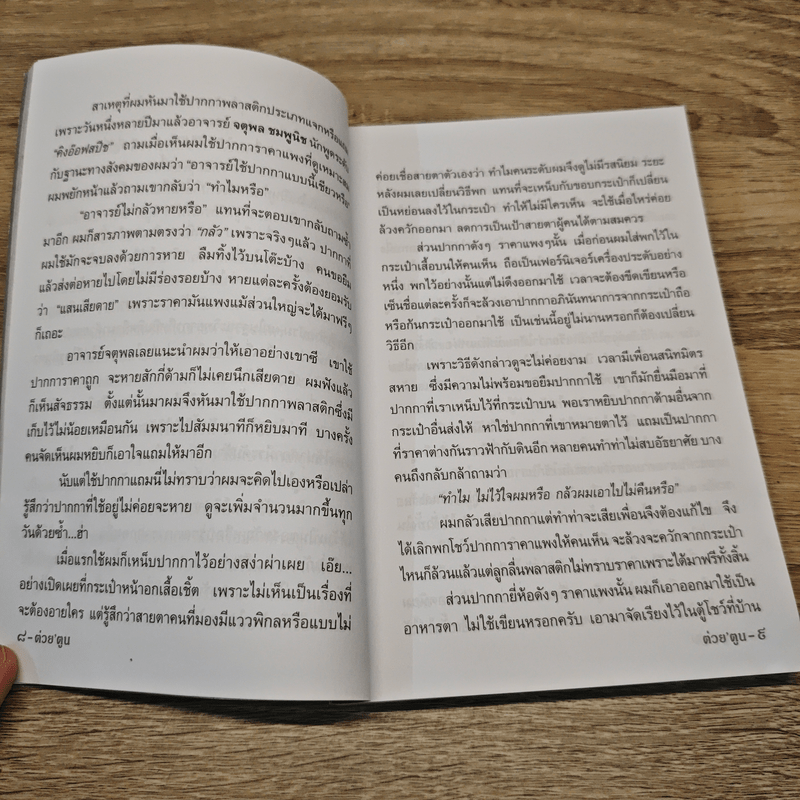 สาเหตุที่ผมหันมาใช้ปากกาพลาสติกประเภทแจกหรือแถม
เพราะวันหนึ่งหลายปีมาแล้วอาจารย์ จตุพล ชมพูนิช นักพูดระดับ
“คิงอ๊อฟสปีช” ถามเมื่อเห็นผมใช้ปากการาคาแพงที่ดูเหมาะสม
กับฐานะทางสังคมของผมว่า “อาจารย์ใช้ปากกาแบบนี้เชียวหรือ”
ผมพยักหน้าแล้วถามเขากลับว่า “ทำไมหรือ”
“อาจารย์ไม่กลัวหายหรือ” แทนที่จะตอบเขากลับถามซ้ำ
มาอีก ผมก็สารภาพตามตรงว่า “กลัว” เพราะจริงๆแล้ว ปากกาที่
ผมใช้มักจะจบลงด้วยการหาย ลืมทิ้งไว้บนโต๊ะบ้าง คนขอยืม
แล้วส่งต่อหายไปโดยไม่มีร่องรอยบ้าง หายแต่ละครั้งต้องยอมรับ
ว่า “แสนเสียดาย” เพราะราคามันแพงแม้ส่วนใหญ่จะได้มาฟรีๆ
ก็เถอะ
อาจารย์จตุพลเลยแนะนำผมว่าให้เอาอย่างเขาซี เขาใช้
ปากการาคาถูก จะหายสักกี่ด้ามก็ไม่เคยนึกเสียดาย ผมฟังแล้ว
ก็เห็นสัจธรรม ตั้งแต่นั้นมาผมจึงหันมาใช้ปากกาพลาสติกซึ่งมี
เก็บไว้ไม่น้อยเหมือนกัน เพราะไปสัมมนาทีก็หยิบมาที บางครั้ง
คนจัดเห็นผมหยิบก็เอาใจแถมให้มาอีก
นับแต่ใช้ปากกาแถมนี่ไม่ทราบว่าผมจะคิดไปเองหรือเปล่า
รู้สึกว่าปากกาที่ใช้อยู่ไม่ค่อยจะหาย ดูจะเพิ่มจำนวนมากขึ้นทุก
วันด้วยซ้ำ...ฮ่า
เมื่อแรกใช้ผมก็เหน็บปากกาไว้อย่างสง่าผ่าเผย เอ๊ย...
อย่างเปิดเผยที่กระเป๋าหน้าอกเสื้อเชิ้ต เพราะไม่เห็นเป็นเรื่องที่
จะต้องอายใคร แต่รู้สึกว่าสายตาคนที่มองมีแววพิกลหรือแบบไม่
๘ - ต่วย'ตูน
ค่อยเชื่อสายตาตัวเองว่า ทำไมคนระดับผมจึงดูไม่มีรสนิยม ระยะ
หลังผมเลยเปลี่ยนวิธีพก แทนที่จะเหน็บกับขอบกระเป๋าก็เปลี่ยน
เป็นหย่อนลงไว้ในกระเป๋า ทำให้ไม่มีใครเห็น จะใช้เมื่อไหร่ค่อย
ล้วงควักออกมา ลดการเป็นเป้าสายตาผู้คนได้ตามสมควร
ส่วนปากกาดังๆ ราคาแพงๆนั้น เมื่อก่อนผมใส่พกไว้ใน
กระเป๋าเสื้อบนให้คนเห็น ถือเป็นเฟอร์นิเจอร์เครื่องประดับอย่าง
หนึ่ง พกไว้อย่างนั้นแต่ไม่ดึงออกมาใช้ เวลาจะต้องขีดเขียนหรือ
เซ็นชื่อแต่ละครั้งก็จะล้วงเอาปากกาอภินันทนาการจากกระเป๋าถือ
หรือก้นกระเป๋าออกมาใช้ เป็นเช่นนี้อยู่ไม่นานหรอกก็ต้องเปลี่ยน
วิธีอีก
เพราะวิธีดังกล่าวดูจะไม่ค่อยงาม เวลามีเพื่อนสนิทมิตร
สหาย ซึ่งมีความไม่พร้อมขอยืมปากกาใช้ เขาก็มักยื่นมือมาที่
ปากกาที่เราเหน็บไว้ที่กระเป๋าบน พอเราหยิบปากกาด้ามอื่นจาก
กระเป๋าอื่นส่งให้ หาใช่ปากกาที่เขาหมายตาไว้ แถมเป็นปากกา
ที่ราคาต่างกันราวฟ้ากับดินอีก หลายคนทำท่าไม่สบอัธยาศัย บาง
คนถึงกลับกล้าถามว่า
“ทำไม ไม่ไว้ใจผมหรือ กลัวผมเอาไปไม่คืนหรือ”
ผมกลัวเสียปากกาแต่ทำท่าจะเสียเพื่อนจึงต้องแก้ไข จึง
ได้เลิกพกโชว์ปากการาคาแพงให้คนเห็น จะล้วงจะควักจากกระเป๋า
ไหนก็ล้วนแล้วแต่ลูกลื่นพลาสติกไม่ทราบราคาเพราะได้มาฟรีทั้งสิ้น
ส่วนปากกายี่ห้อดังๆ ราคาแพงนั้น ผมก็เอาออกมาใช้เป็น
อาหารตา ไม่ใช้เขียนหรอกครับ เอามาจัดเรียงไว้ในตู้โชว์ที่บ้าน
ต่วย'ตูน - ๙